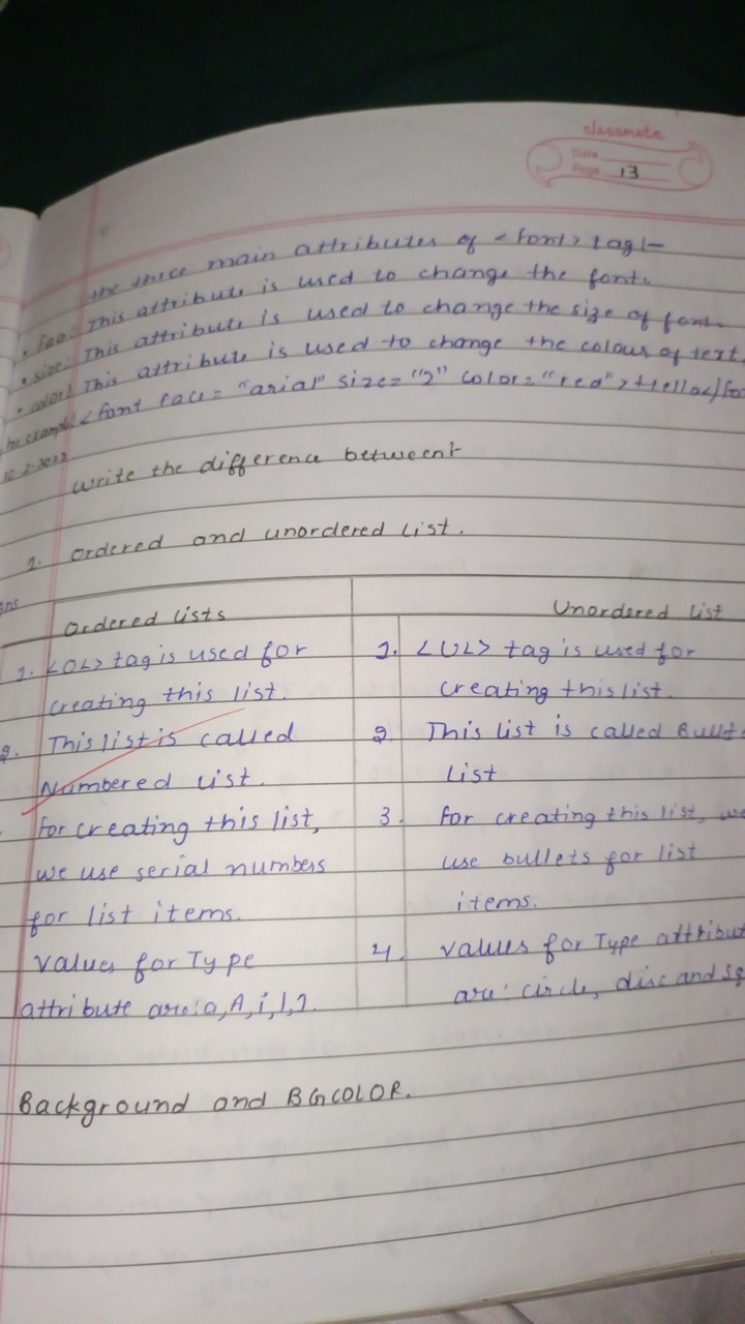 classmate
Date
Page 13
the three main attributes of <font> tag:-
• face: This attribute is used to change the font.
• size: This attribute is used to change the size of font.
• color: This attribute is used to change the colour of text.
for example: <font face = "arial" size= "2" color = "red">Hello</fo
Write the difference between:-
1. Ordered and unordered list.
Ans
Ordered Lists
Unordered list
1. <OL> tag is used for
creating this list.
2. This list is called
Numbered list.
for creating this list,
we use serial numbers
for list items.
Values for Type
attribute are: a, A, i, I, 1.
1. <UL> tag is used for
creating this list.
2. This list is called Bullt
list
3. for creating this list, we
use bullets for list
items.
4. values for Type attribut
are: circle, disc and sq
Background and BGCOLOR.